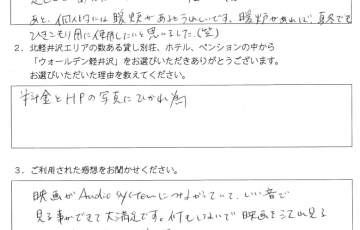 あと、個人的には暖炉があるとうれしいです、暖炉があれば、真冬でも
ひきこもり用に使用したいと思いました。(笑)
2．北軽井沢エリアの数ある貸し別荘、ホテル、ペンションの中から
「ウォールデン軽井沢」をお選びいただきありがとうございます。
お選びいただいた理由を教えてください。
料金とHPの写真にひかれ為
3．ご利用された感想をお聞かせください。
映画がAudio systemにつながっていて、いい音で
見る事ができて大満足です。何もしないで映画を 見る